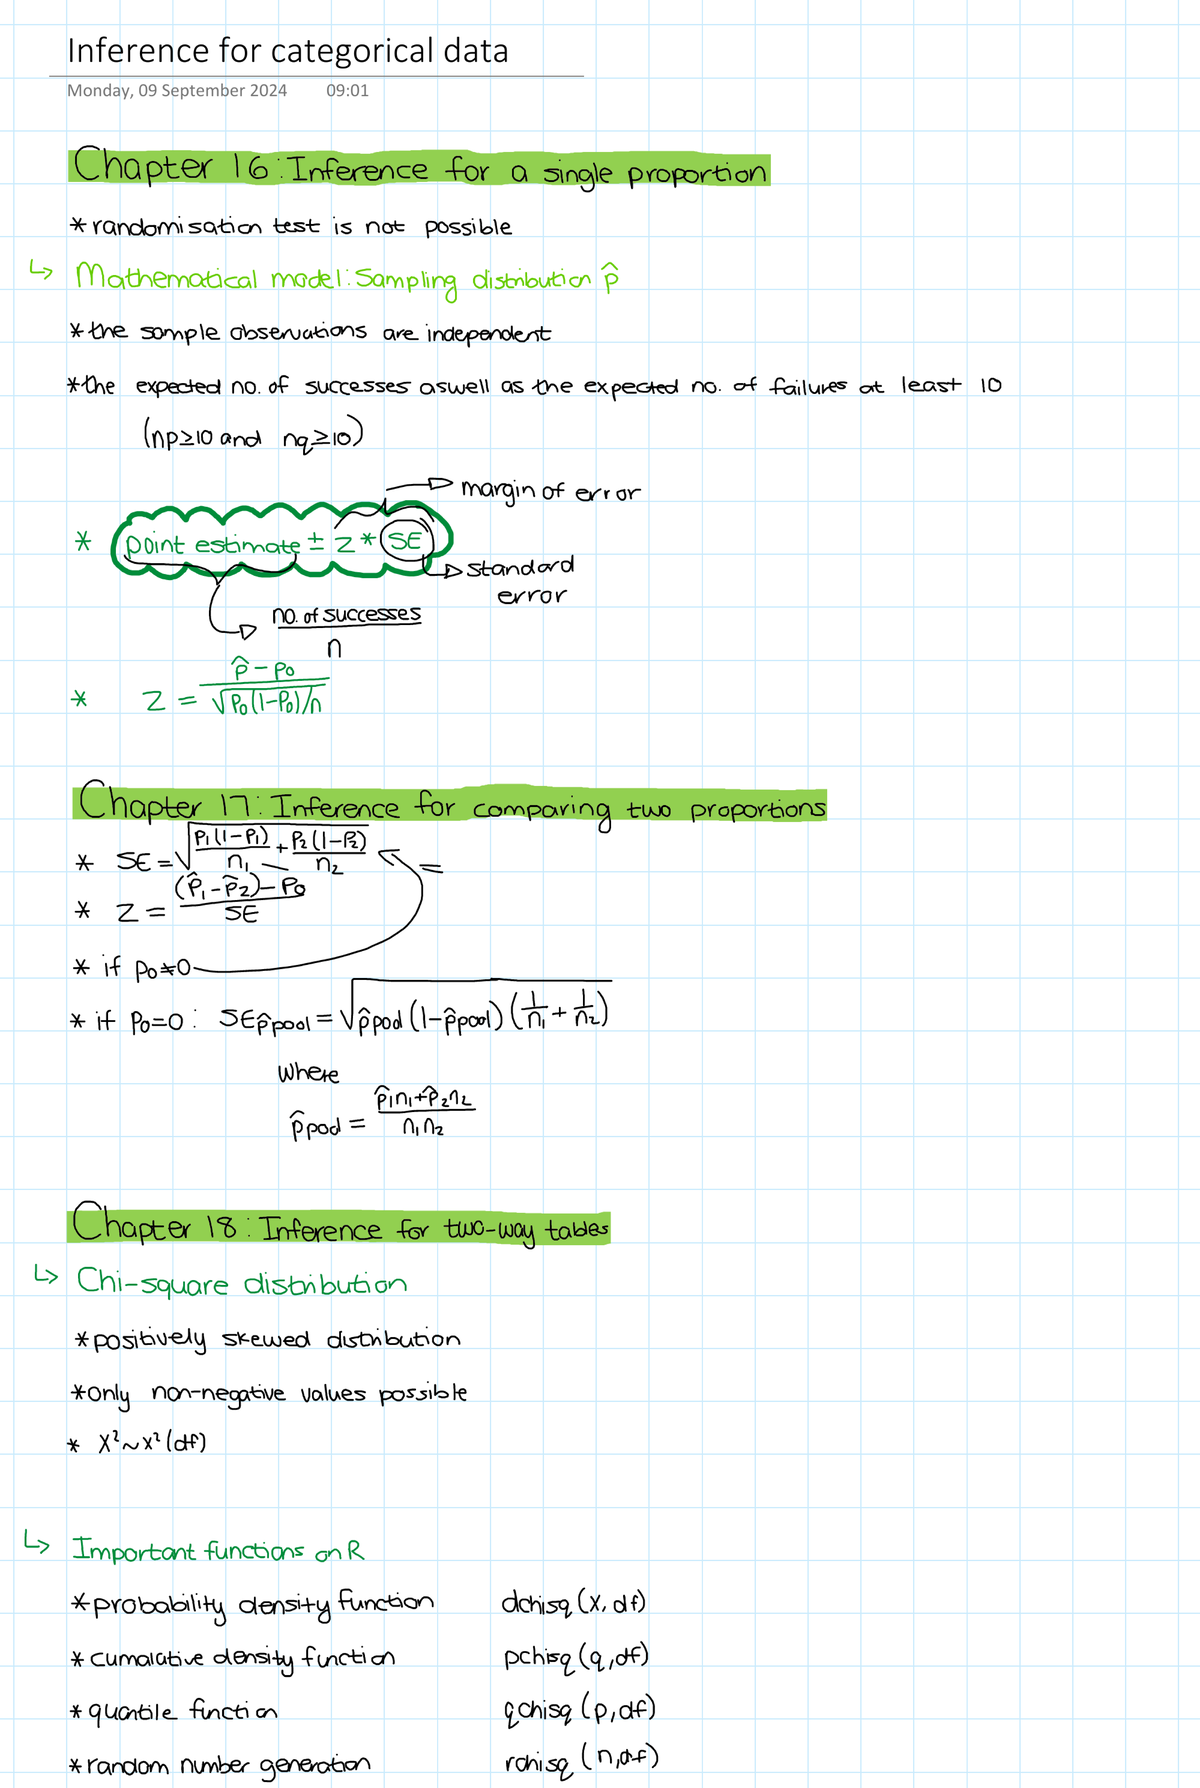 Inference for categorical data
Monday, 09 September 2024 09:01
Chapter 16: Inference for a single proportion
* randomisation test is not possible
↳ Mathematical model: Sampling distribution p̂
* the sample observations are independent
* the expected no. of successes aswell as the expected no. of failures at least 10
(np≥10 and nq≥10)
margin of error
* point estimate ± z * SE
standard
error
no. of successes
n
* Z = (p̂ - p₀) / √p₀(1-p₀)/n
Chapter 17: Inference for comparing two proportions
* SE = √(p₁(1-p₁)/n₁ + p₂(1-p₂)/n₂)
=
* Z = ((p̂₁ - p̂₂) - p₀) / SE
* if p₀≠0
* if p₀=0: SEp̂pool = √p̂pool(1-p̂pool)(1/n₁ + 1/n₂)
where
p̂pool = (p̂₁n₁+p̂₂n₂) / n₁n₂
Chapter 18: Inference for two-way tables
↳ Chi-square distribution
* positively skewed distribution
* only non-negative values possible
* X²~x²(df)
↳ Important functions on R
* probability density function dchisq(x, df)
* cumalative density function pchisq(q,df)
* quantile function qchisq(p,df)
* random number generation rchisq(n,df)